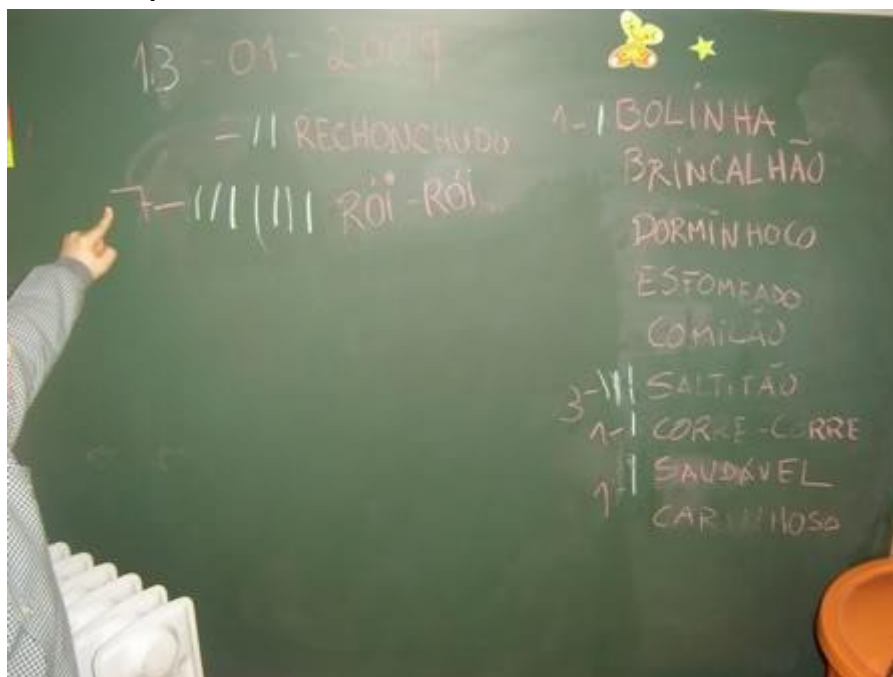 13-01-2009
- || RECHONCHUDO
7-||||||| RÓI-RÓI...
1-| BOLINHA
BRINCALHÃO
DORMINHOCO
ESFOMEADO
COMILÃO
3-||| SALTITÃO
1-| CORRE-CORRE
1-| SAUDÁVEL
CARINHOSO